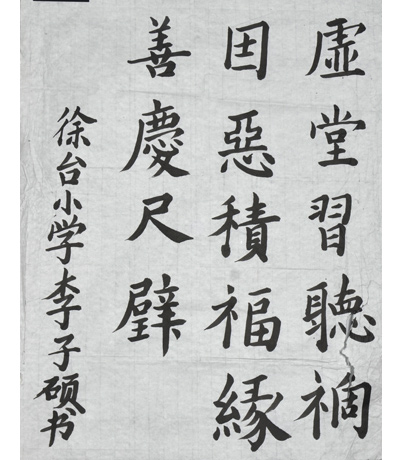 虛堂習聽禍
因惡積福緣
善慶尺璧
徐台小学李子硕书